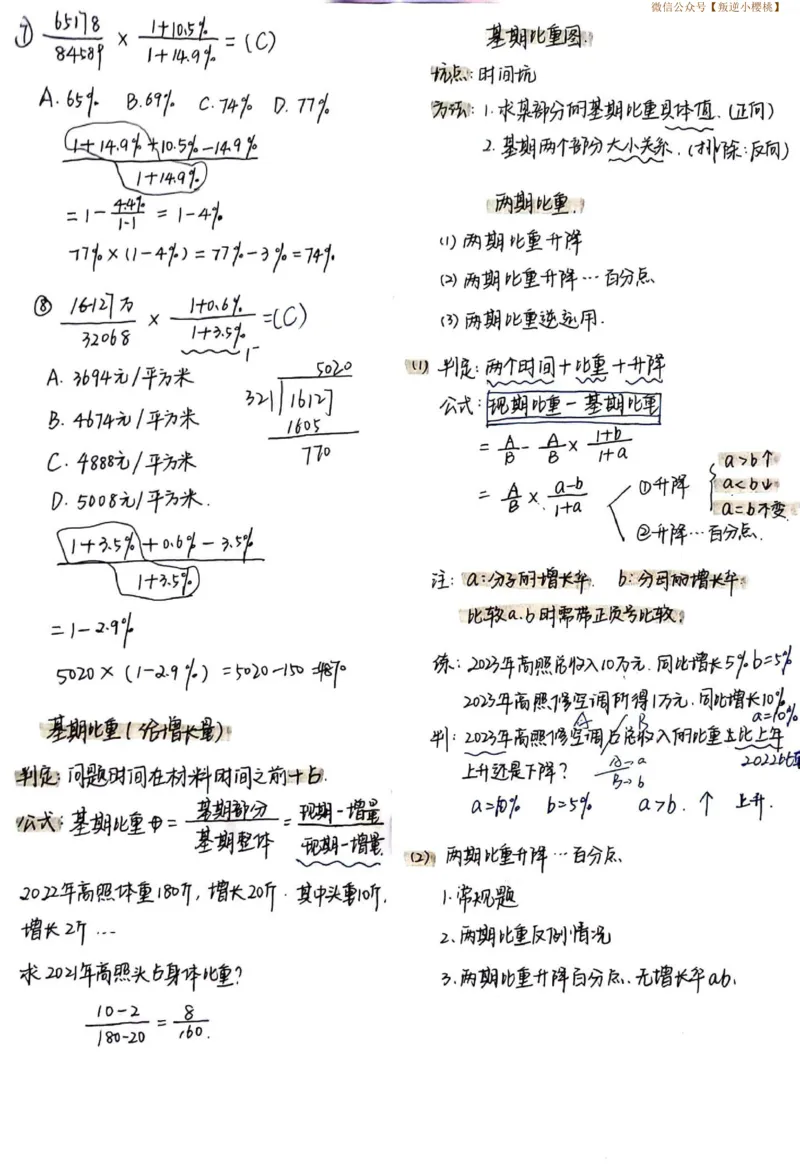 微信公众号【叛逆小樱桃】
⑦ 65178/84589 × (1+10.5%)/(1+14.9%) = (C)
A. 65% B. 69% C. 74% D. 77%
(1+14.9%+10.5%-14.9%)/(1+14.9%)
= 1 - 4.4%/1.1 = 1-4%
77%×(1-4%) = 77%-3% = 74%
⑧ 16127万/32068 × (1+0.6%)/(1+3.5%) = (C)
1-
A. 3694元/平方米
B. 4674元/平方米
C. 4888元/平方米
D. 5008元/平方米.
5020
321 16127
1605
770
(1+3.5%+0.6%-3.5%)/(1+3.5%)
= 1-2.9%
5020×(1-2.9%) = 5020-150=4870
基期比重(给增长量)
判定: 问题时间在材料时间之前+占.
公式: 基期比重 = 基期部分/基期整体 = 现期-增量/现期-增量
2022年高照体重180斤, 增长20斤. 其中头重10斤,
增长2斤…
求2021年高照头占身体比重?
(10-2)/(180-20) = 8/160.
基期比重图.
坑点: 时间坑
方法: 1. 求某部分的基期比重具体值. (正向)
2. 基期两个部分大小关系. (排除:反向)
两期比重.
(1) 两期比重升降
(2) 两期比重升降…百分点
(3) 两期比重逆运用.
(1) 判定: 两个时间+比重+升降
公式: 现期比重-基期比重
= A/B - A/B × (1+b)/(1+a)
= A/B × (a-b)/(1+a)
①升降
a>b↑
a<b↓
a=b不变.
②升降…百分点.
注: a:分子的增长率. b:分母的增长率.
比较a.b时需带正负号比较.
练: 2023年高照总收入10万元. 同比增长5% b=5%
2023年高照修空调所得1万元. 同比增长10%
a=10%
判: 2023年高照修空调占总收入的比重比上年
A B
上升还是下降? A→a
B→b
a=10% b=5% a>b. ↑ 上升.
(2) 两期比重升降…百分点
1. 常规题
2. 两期比重反例情况
3. 两期比重升降百分点. 无增长率ab.